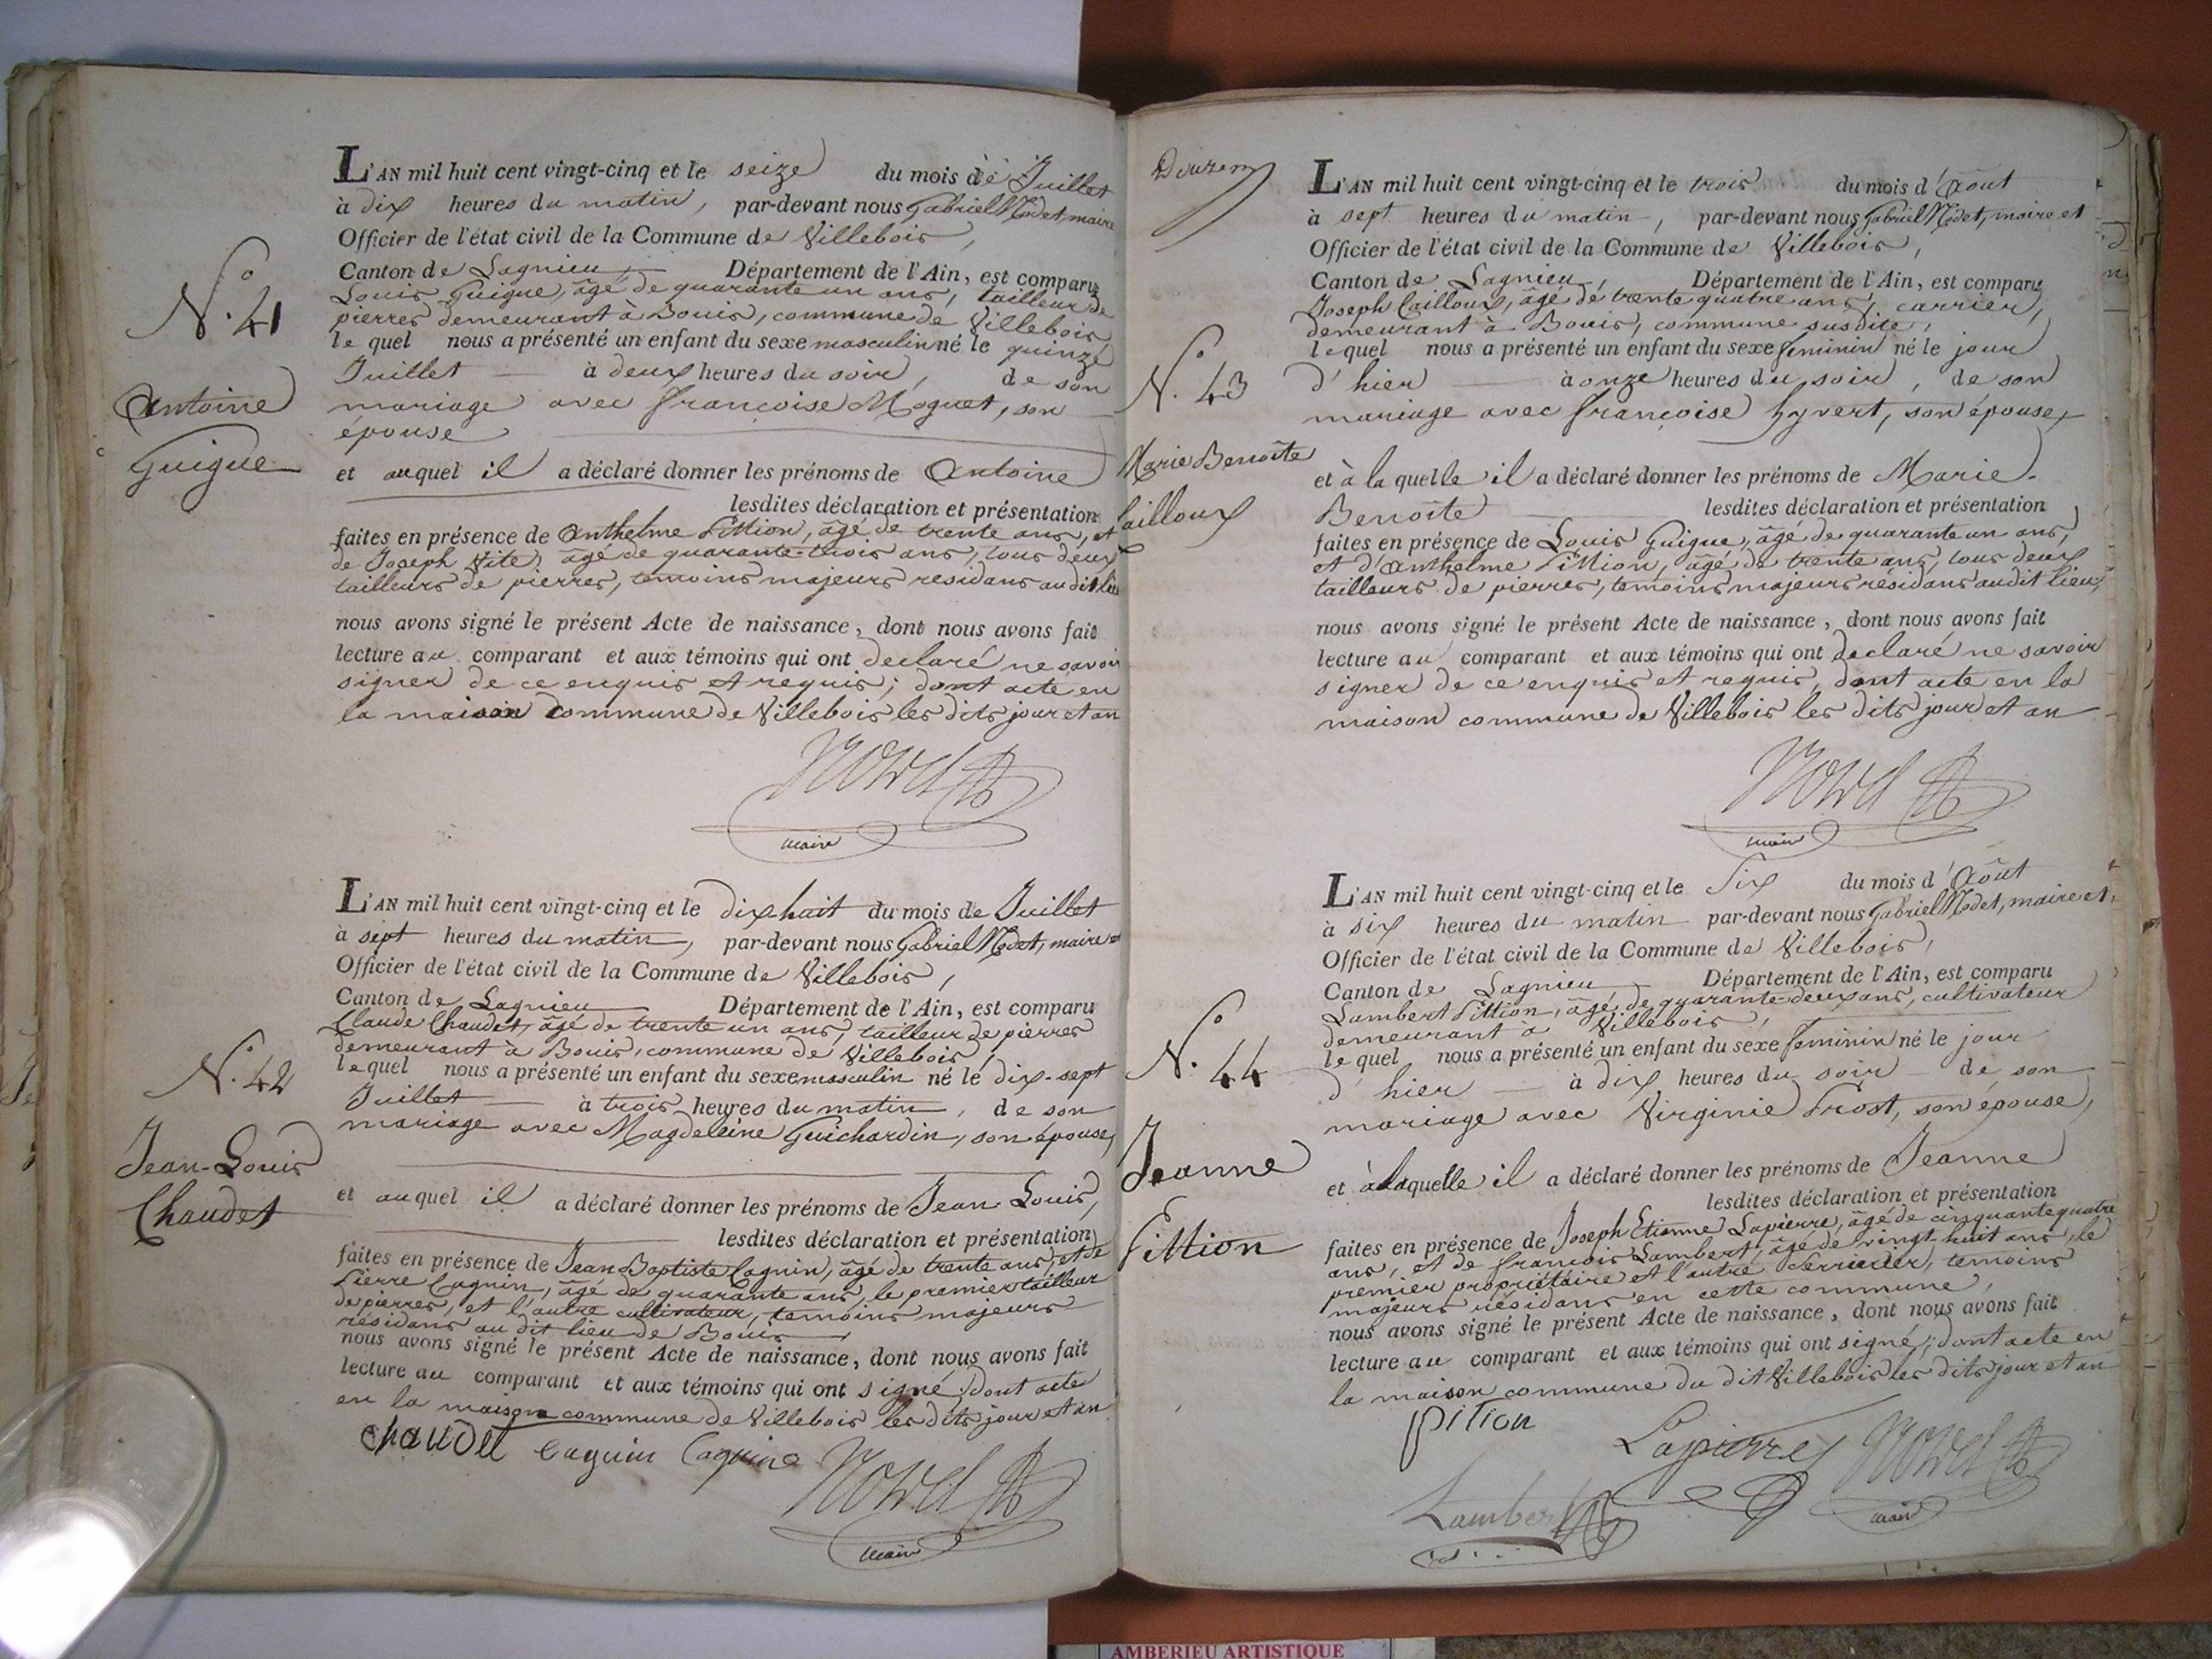 N.o 41
Antoine
Guigue
L'AN mil huit cent vingt-cinq et le seize du mois de Juillet
à dix heures du matin, par-devant nous Gabriel Nodet, maire
Officier de l'état civil de la Commune de Villebois,
Canton de Lagnieu, Département de l'Ain, est comparu
Louis Guigue, âgé de quarante un ans, tailleur de
pierres demeurant à Bouis, commune de Villebois,
le quel nous a présenté un enfant du sexe masculin né le quinze
Juillet à deux heures du soir, de son
mariage avec françoise Moguet, son
épouse
et auquel il a déclaré donner les prénoms de Antoine
lesdites déclaration et présentation
faites en présence de Anthelme Pittion, âgé de trente ans, et
de Joseph Vite, âgé de quarante-trois ans, tous deux
tailleurs de pierres, temoins majeurs residans au dit lieu
nous avons signé le présent Acte de naissance, dont nous avons fait
lecture au comparant et aux témoins qui ont declaré ne savoir
signer de ce enquis et requis; dont acte en
la maison commune de Villebois les dits jour et an
maire
N.o 42
Jean-Louis
Chaudet
L'AN mil huit cent vingt-cinq et le dix huit du mois de Juillet
à sept heures du matin, par-devant nous Gabriel Nodet, maire et
Officier de l'état civil de la Commune de Villebois,
Canton de Lagnieu Département de l'Ain, est comparu
Claude Chaudet, âgé de trente un ans, tailleur de pierres
demeurant à Bouis, commune de Villebois,
lequel nous a présenté un enfant du sexe masculin né le dix-sept
Juillet à trois heures du matin, de son
mariage avec Magdeleine Guichardin, son épouse,
et auquel il a déclaré donner les prénoms de Jean Louis,
lesdites déclaration et présentation
faites en présence de Jean Baptiste Cagnin, âgé de trente ans, et de
Pierre Cagnin, âgé de quarante ans, le premier tailleur
de pierres, et l'autre cultivateur, temoins majeurs
résidans au dit lieu de Bouis,
nous avons signé le présent Acte de naissance, dont nous avons fait
lecture au comparant et aux témoins qui ont signé; dont acte
en la maison commune de Villebois les dits jour et an
chaudet Caguin Caguin
maire
Douzem
N.o 43
Marie Benoîte
Cailloux
L'AN mil huit cent vingt-cinq et le trois du mois d'Août
à sept heures du matin, par-devant nous Gabriel Nodet, maire et
Officier de l'état civil de la Commune de Villebois,
Canton de Lagnieu, Département de l'Ain, est comparu
Joseph Cailloux, âgé de trente quatre ans, carrier,
demeurant à Bouis, commune susdite,
lequel nous a présenté un enfant du sexe feminin né le jour
d'hier à onze heures du soir, de son
mariage avec françoise hyvert, son épouse,
et à la quelle il a déclaré donner les prénoms de Marie-
Benoîte lesdites déclaration et présentation
faites en présence de Louis Guigue, âgé de quarante un ans,
et d'Anthelme Pittion, âgé de trente ans, tous deux
tailleurs de pierres, temoins majeurs résidans audit lieu,
nous avons signé le présent Acte de naissance, dont nous avons fait
lecture au comparant et aux témoins qui ont declaré ne savoir
signer de ce enquis et requis, dont acte en la
maison commune de Villebois les dits jour et an
maire
N.o 44
Jeanne
Pittion
L'AN mil huit cent vingt-cinq et le Six du mois d'Août
à six heures du matin par-devant nous Gabriel Nodet, maire et
Officier de l'état civil de la Commune de Villebois,
Canton de Lagnieu, Département de l'Ain, est comparu
Lambert Pittion, âgé de quarante deux ans, cultivateur
demeurant à Villebois,
lequel nous a présenté un enfant du sexe feminin né le jour
d'hier à dix heures du soir de son
mariage avec Virginie Prost, son épouse,
et à laquelle il a déclaré donner les prénoms de Jeanne
lesdites déclaration et présentation
faites en présence de Joseph Etienne Lapierre, âgé de cinquante quatre
ans, et de françois Lambert, âgé de vingt huit ans, le
premier propriétaire et l'autre Serrurier, temoins
majeurs résidans en cette commune,
nous avons signé le présent Acte de naissance, dont nous avons fait
lecture au comparant et aux témoins qui ont signé; dont acte en
la maison commune du dit Villebois les dits jour et an
pition
Lapierre
Lambert
maire
AMBERIEU ARTISTIQUE